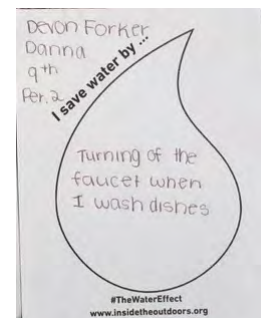 Devon Forker
Danna
9th
Per. 2
I save water by ...
Turning of the
faucet when
I wash dishes
#TheWaterEffect
www.insidetheoutdoors.org